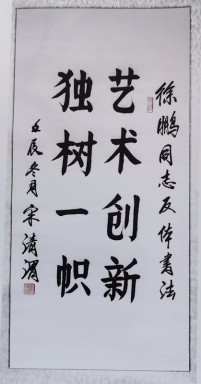 徐鹏同志反体书法
艺术创新
独树一帜
壬辰冬月宋清渭